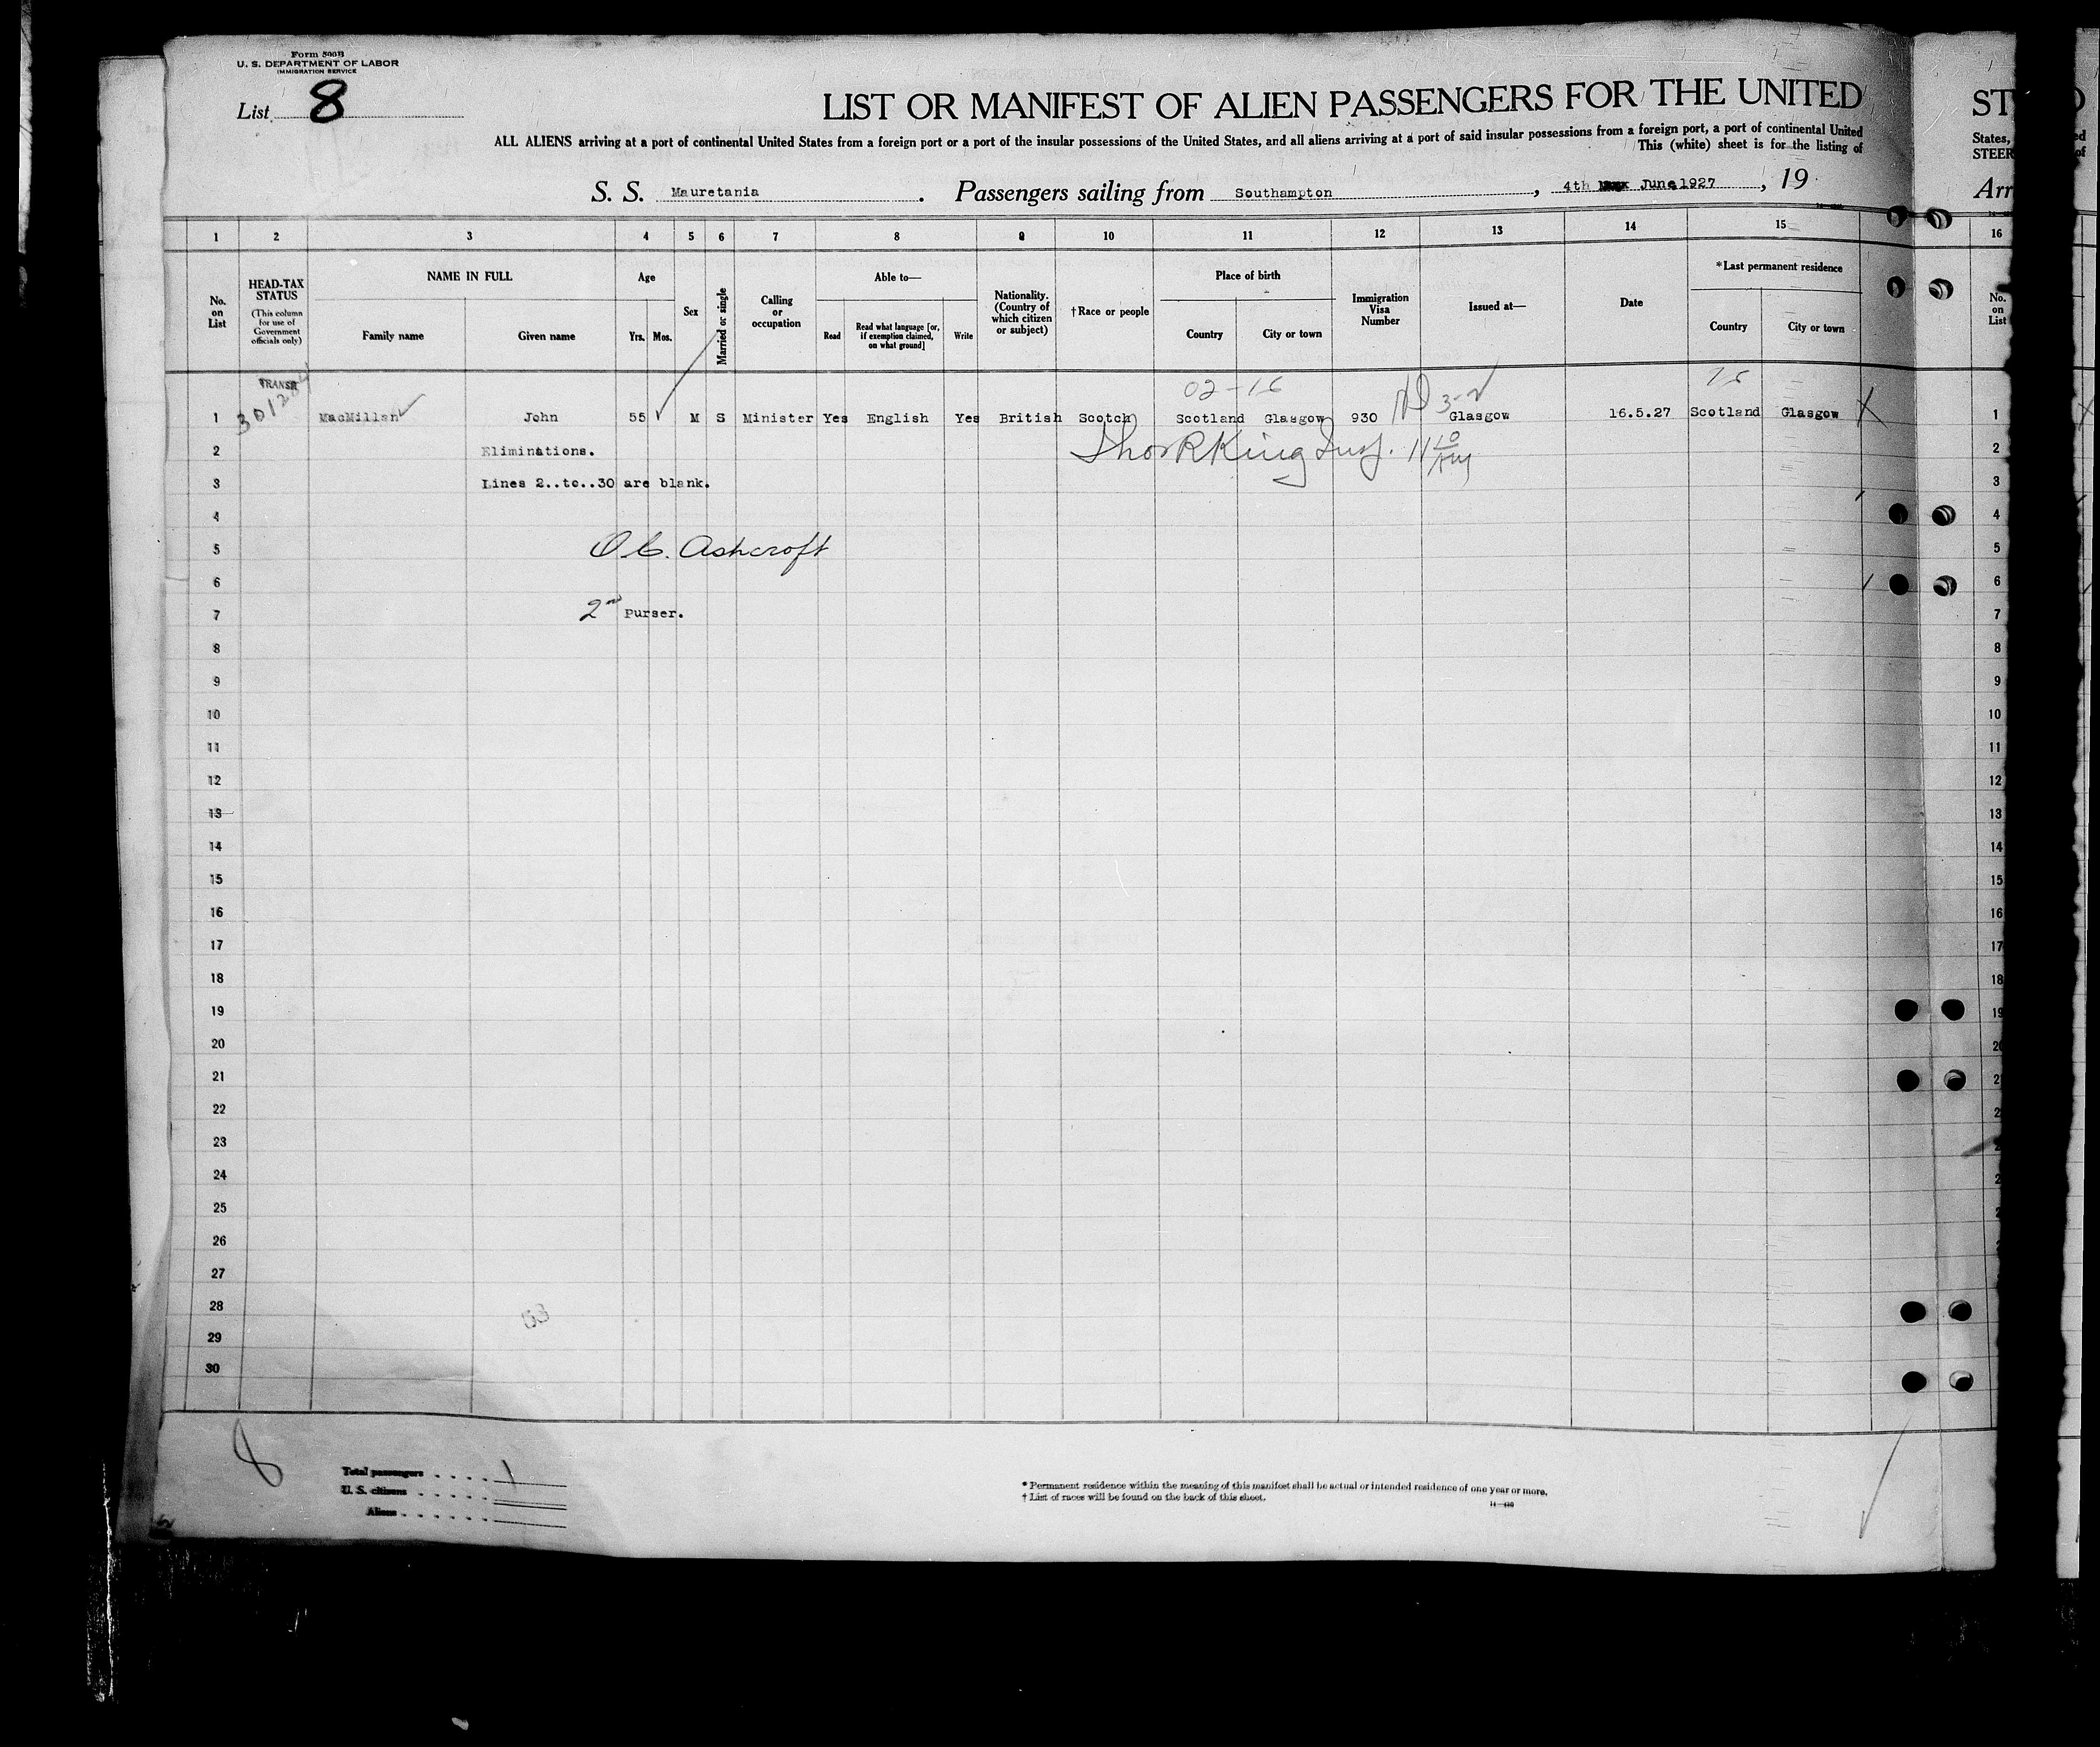 Form 500B
U. S. DEPARTMENT OF LABOR
IMMIGRATION SERVICE
List 8
LIST OR MANIFEST OF ALIEN PASSENGERS FOR THE UNITED
ST
ALL ALIENS arriving at a port of continental United States from a foreign port or a port of the insular possessions of the United States, and all aliens arriving at a port of said insular possessions from a foreign port, a port of continental United
States,
This (white) sheet is for the listing of
STEER
S. S. Mauretania. Passengers sailing from Southampton, 4th June 1927, 19
Arr
1 2 3 4 5 6 7 8 9 10 11 12 13 14 15 16
No. on List
HEAD-TAX STATUS
(This column for use of Government officials only)
NAME IN FULL
Family name
Given name
Age
Yrs. Mos.
Sex
Married or single
Calling or occupation
Able to—
Read
Read what language [or, if exemption claimed, on what ground]
Write
Nationality. (Country of which citizen or subject)
†Race or people
Place of birth
Country
City or town
Immigration Visa Number
Issued at—
Date
*Last permanent residence
Country
City or town
No. on List
TRANSIT
02-16
1 MacMillan John 55 M S Minister Yes English Yes British Scotch Scotland Glasgow 930 Glasgow 16.5.27 Scotland Glasgow 1
2 Eliminations. 2
3 Lines 2..to..30 are blank. 3
4 4
5 Ashcroft 5
6 6
7 2nd Purser. 7
8 8
9 9
10 10
11 11
12 12
13 13
14 14
15 15
16 16
17 17
18 18
19 19
20
21
22
23
24
25
26
27
28
29
30
8
Total passengers . . . . 1
U. S. citizens . . . . . .
Aliens . . . . . . .
* Permanent residence within the meaning of this manifest shall be actual or intended residence of one year or more.
† List of races will be found on the back of this sheet.